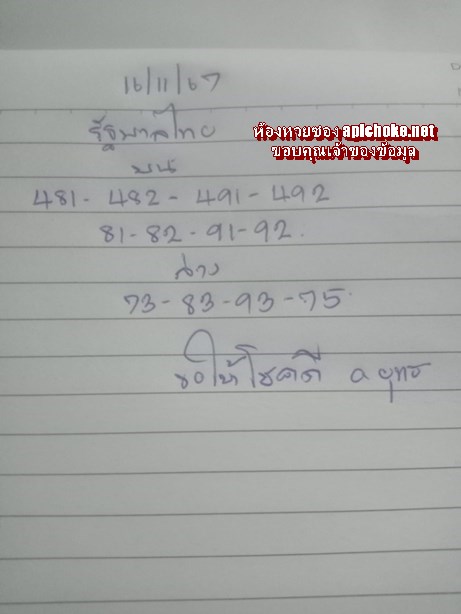 16/11/67
รัฐบาลไทย
ห้องหวยซอง apichoke.net
ขอบคุณเจ้าของข้อมูล
บน
481 - 482 - 491 - 492
81 - 82 - 91 - 92.
ล่าง
73 - 83 - 93 - 75.
ขอให้โชคดี